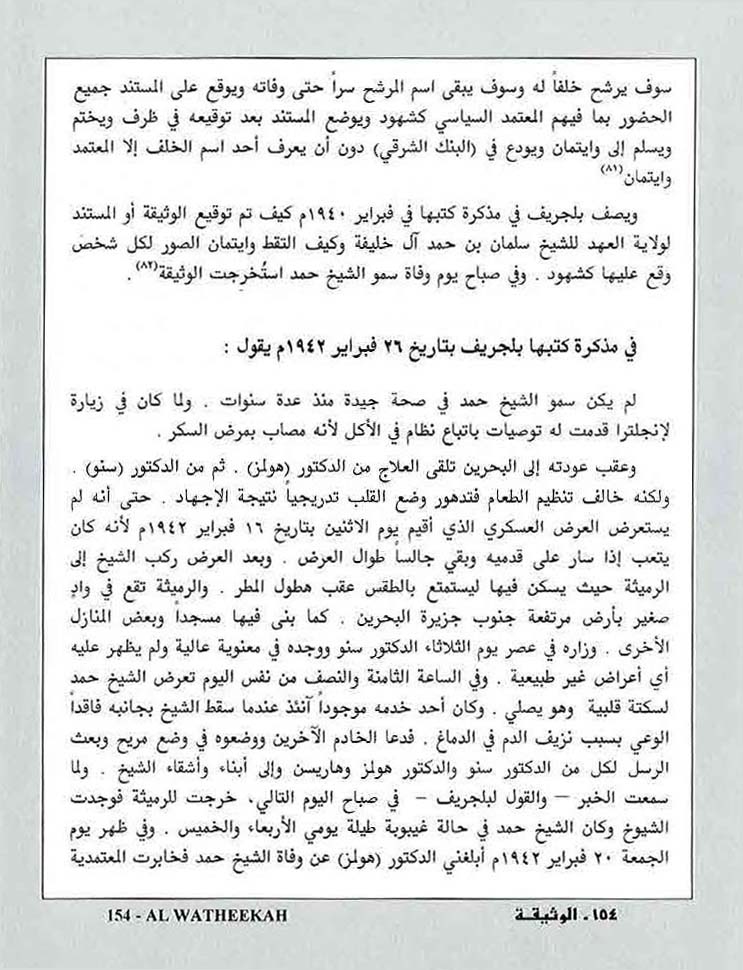 سوف يرشح خلفاً له وسوف يبقى اسم المرشح سراً حتى وفاته ويوقع على المستند جميع
الحضور بما فيهم المعتمد السياسي كشهود ويوضع المستند بعد توقيعه في ظرف ويختم
ويسلم إلى وايتمان ويودع في (البنك الشرقي) دون أن يعرف أحد اسم الخلف إلا المعتمد
وايتمان(٨١)
ويصف بلجريف في مذكرة كتبها في فبراير ١٩٤٠م كيف تم توقيع الوثيقة أو المستند
لولاية العهد للشيخ سلمان بن حمد آل خليفة وكيف التقط وايتمان الصور لكل شخص
وقع عليها كشهود . وفي صباح يوم وفاة سمو الشيخ حمد استُخرجت الوثيقة(٨٢) .
في مذكرة كتبها بلجريف بتاريخ ٢٦ فبراير ١٩٤٢م يقول :
لم يكن سمو الشيخ حمد في صحة جيدة منذ عدة سنوات . ولما كان في زيارة
لإنجلترا قدمت له توصيات باتباع نظام في الأكل لأنه مصاب بمرض السكر .
وعقب عودته إلى البحرين تلقى العلاج من الدكتور (هولمز) . ثم من الدكتور (سنو) .
ولكنه خالف تنظيم الطعام فتدهور وضع القلب تدريجياً نتيجة الإجهاد . حتى أنه لم
يستعرض العرض العسكري الذي أقيم يوم الاثنين بتاريخ ١٦ فبراير ١٩٤٢م لأنه كان
يتعب إذا سار على قدميه وبقي جالساً طوال العرض . وبعد العرض ركب الشيخ إلى
الرميثة حيث يسكن فيها ليستمتع بالطقس عقب هطول المطر . والرميثة تقع في وادٍ
صغير بأرض مرتفعة جنوب جزيرة البحرين . كما بنى فيها مسجداً وبعض المنازل
الأخرى . وزاره في عصر يوم الثلاثاء الدكتور سنو ووجده في معنوية عالية ولم يظهر عليه
أي أعراض غير طبيعية . وفي الساعة الثامنة والنصف من نفس اليوم تعرض الشيخ حمد
لسكتة قلبية وهو يصلي . وكان أحد خدمه موجوداً آنئذ عندما سقط الشيخ بجانبه فاقداً
الوعي بسبب نزيف الدم في الدماغ . فدعا الخادم الآخرين ووضعوه في وضع مريح وبعث
الرسل لكل من الدكتور سنو والدكتور هولمز وهاريسن وإلى أبناء وأشقاء الشيخ . ولما
سمعت الخبر – والقول لبلجريف – في صباح اليوم التالي، خرجت للرميثة فوجدت
الشيوخ وكان الشيخ حمد في حالة غيبوبة طيلة يومي الأربعاء والخميس . وفي ظهر يوم
الجمعة ٢٠ فبراير ١٩٤٢م أبلغني الدكتور (هولمز) عن وفاة الشيخ حمد فخابرت المعتمدية
١٥٤ - الوثيقـة
154 - AL WATHEEKAH